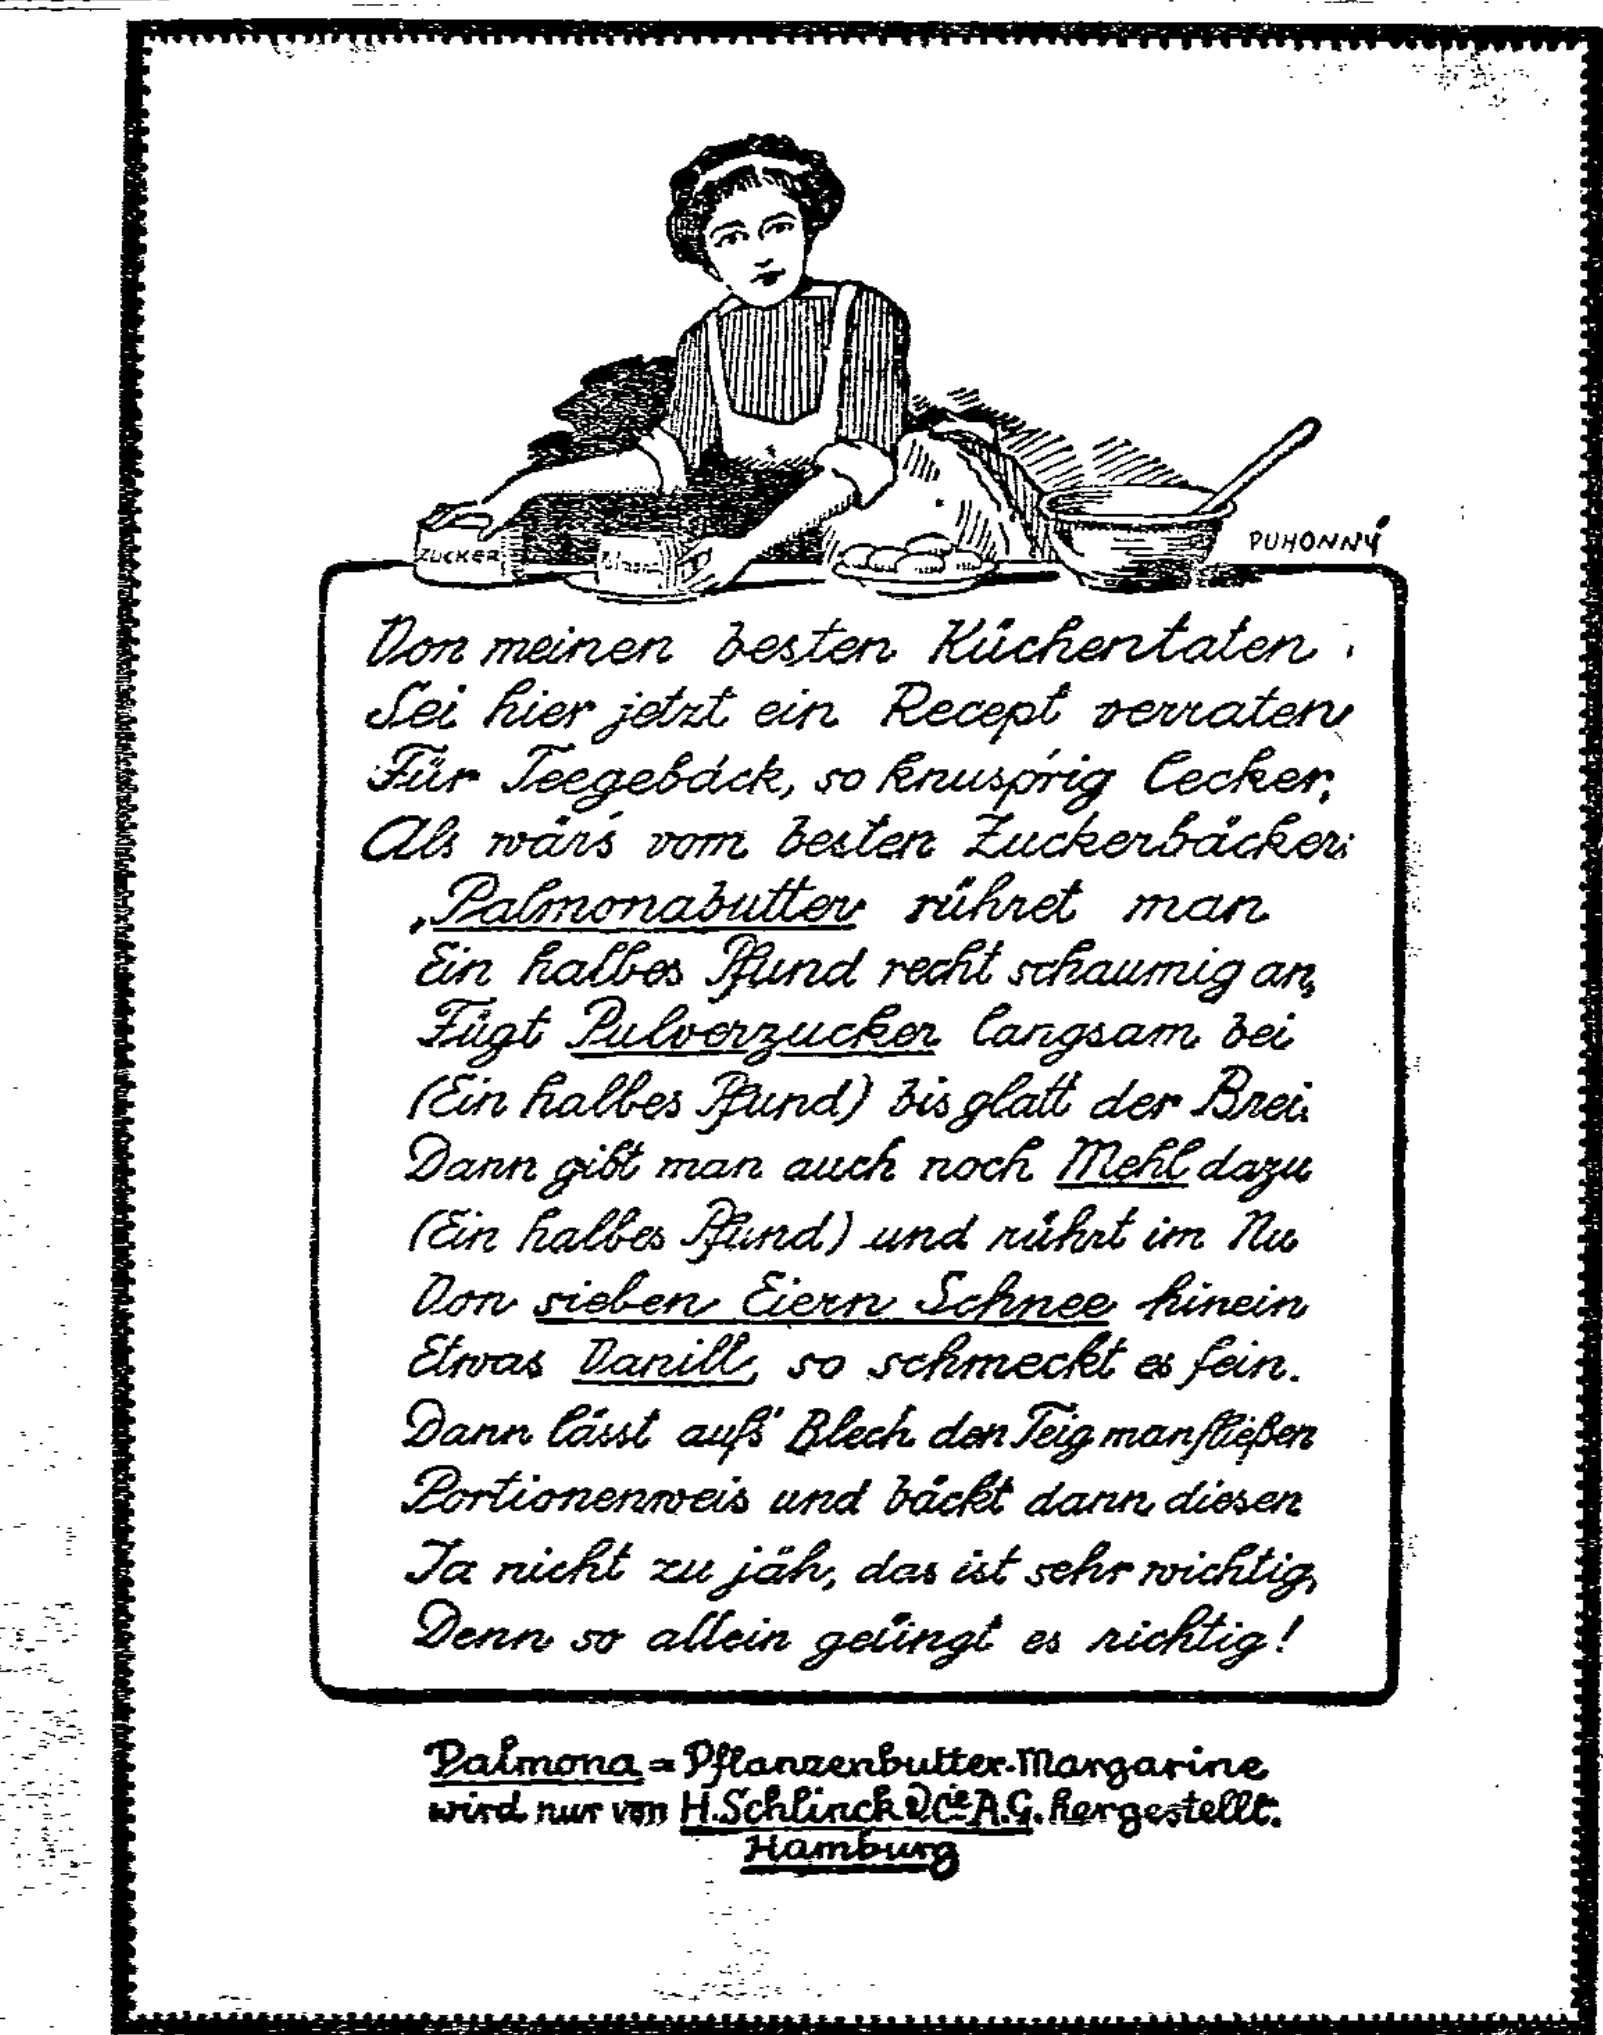 ZUCKER
PUHONNY
Von meinen besten Küchentaten
Sei hier jetzt ein Recept verraten
Für Teegebäck, so knusp'rig lecker,
Als wär's vom besten Zuckerbäcker:
„Palmonabutter rühret man
Ein halbes Pfund recht schaumig an,
Fügt Pulverzucker langsam bei
(Ein halbes Pfund) bis glatt der Brei.
Dann gibt man auch noch Mehl dazu
(Ein halbes Pfund) und rührt im Nu
Von sieben Eiern Schnee hinein
Etwas Vanill, so schmeckt es fein.
Dann lässt auf's Blech den Teig man fließen
Portionenweis und bäckt dann diesen
Ja nicht zu jäh, das ist sehr wichtig,
Denn so allein gelingt es richtig!
Palmona = Pflanzenbutter-Margarine
wird nur von H. Schlinck & Cie A.G. hergestellt.
Hamburg